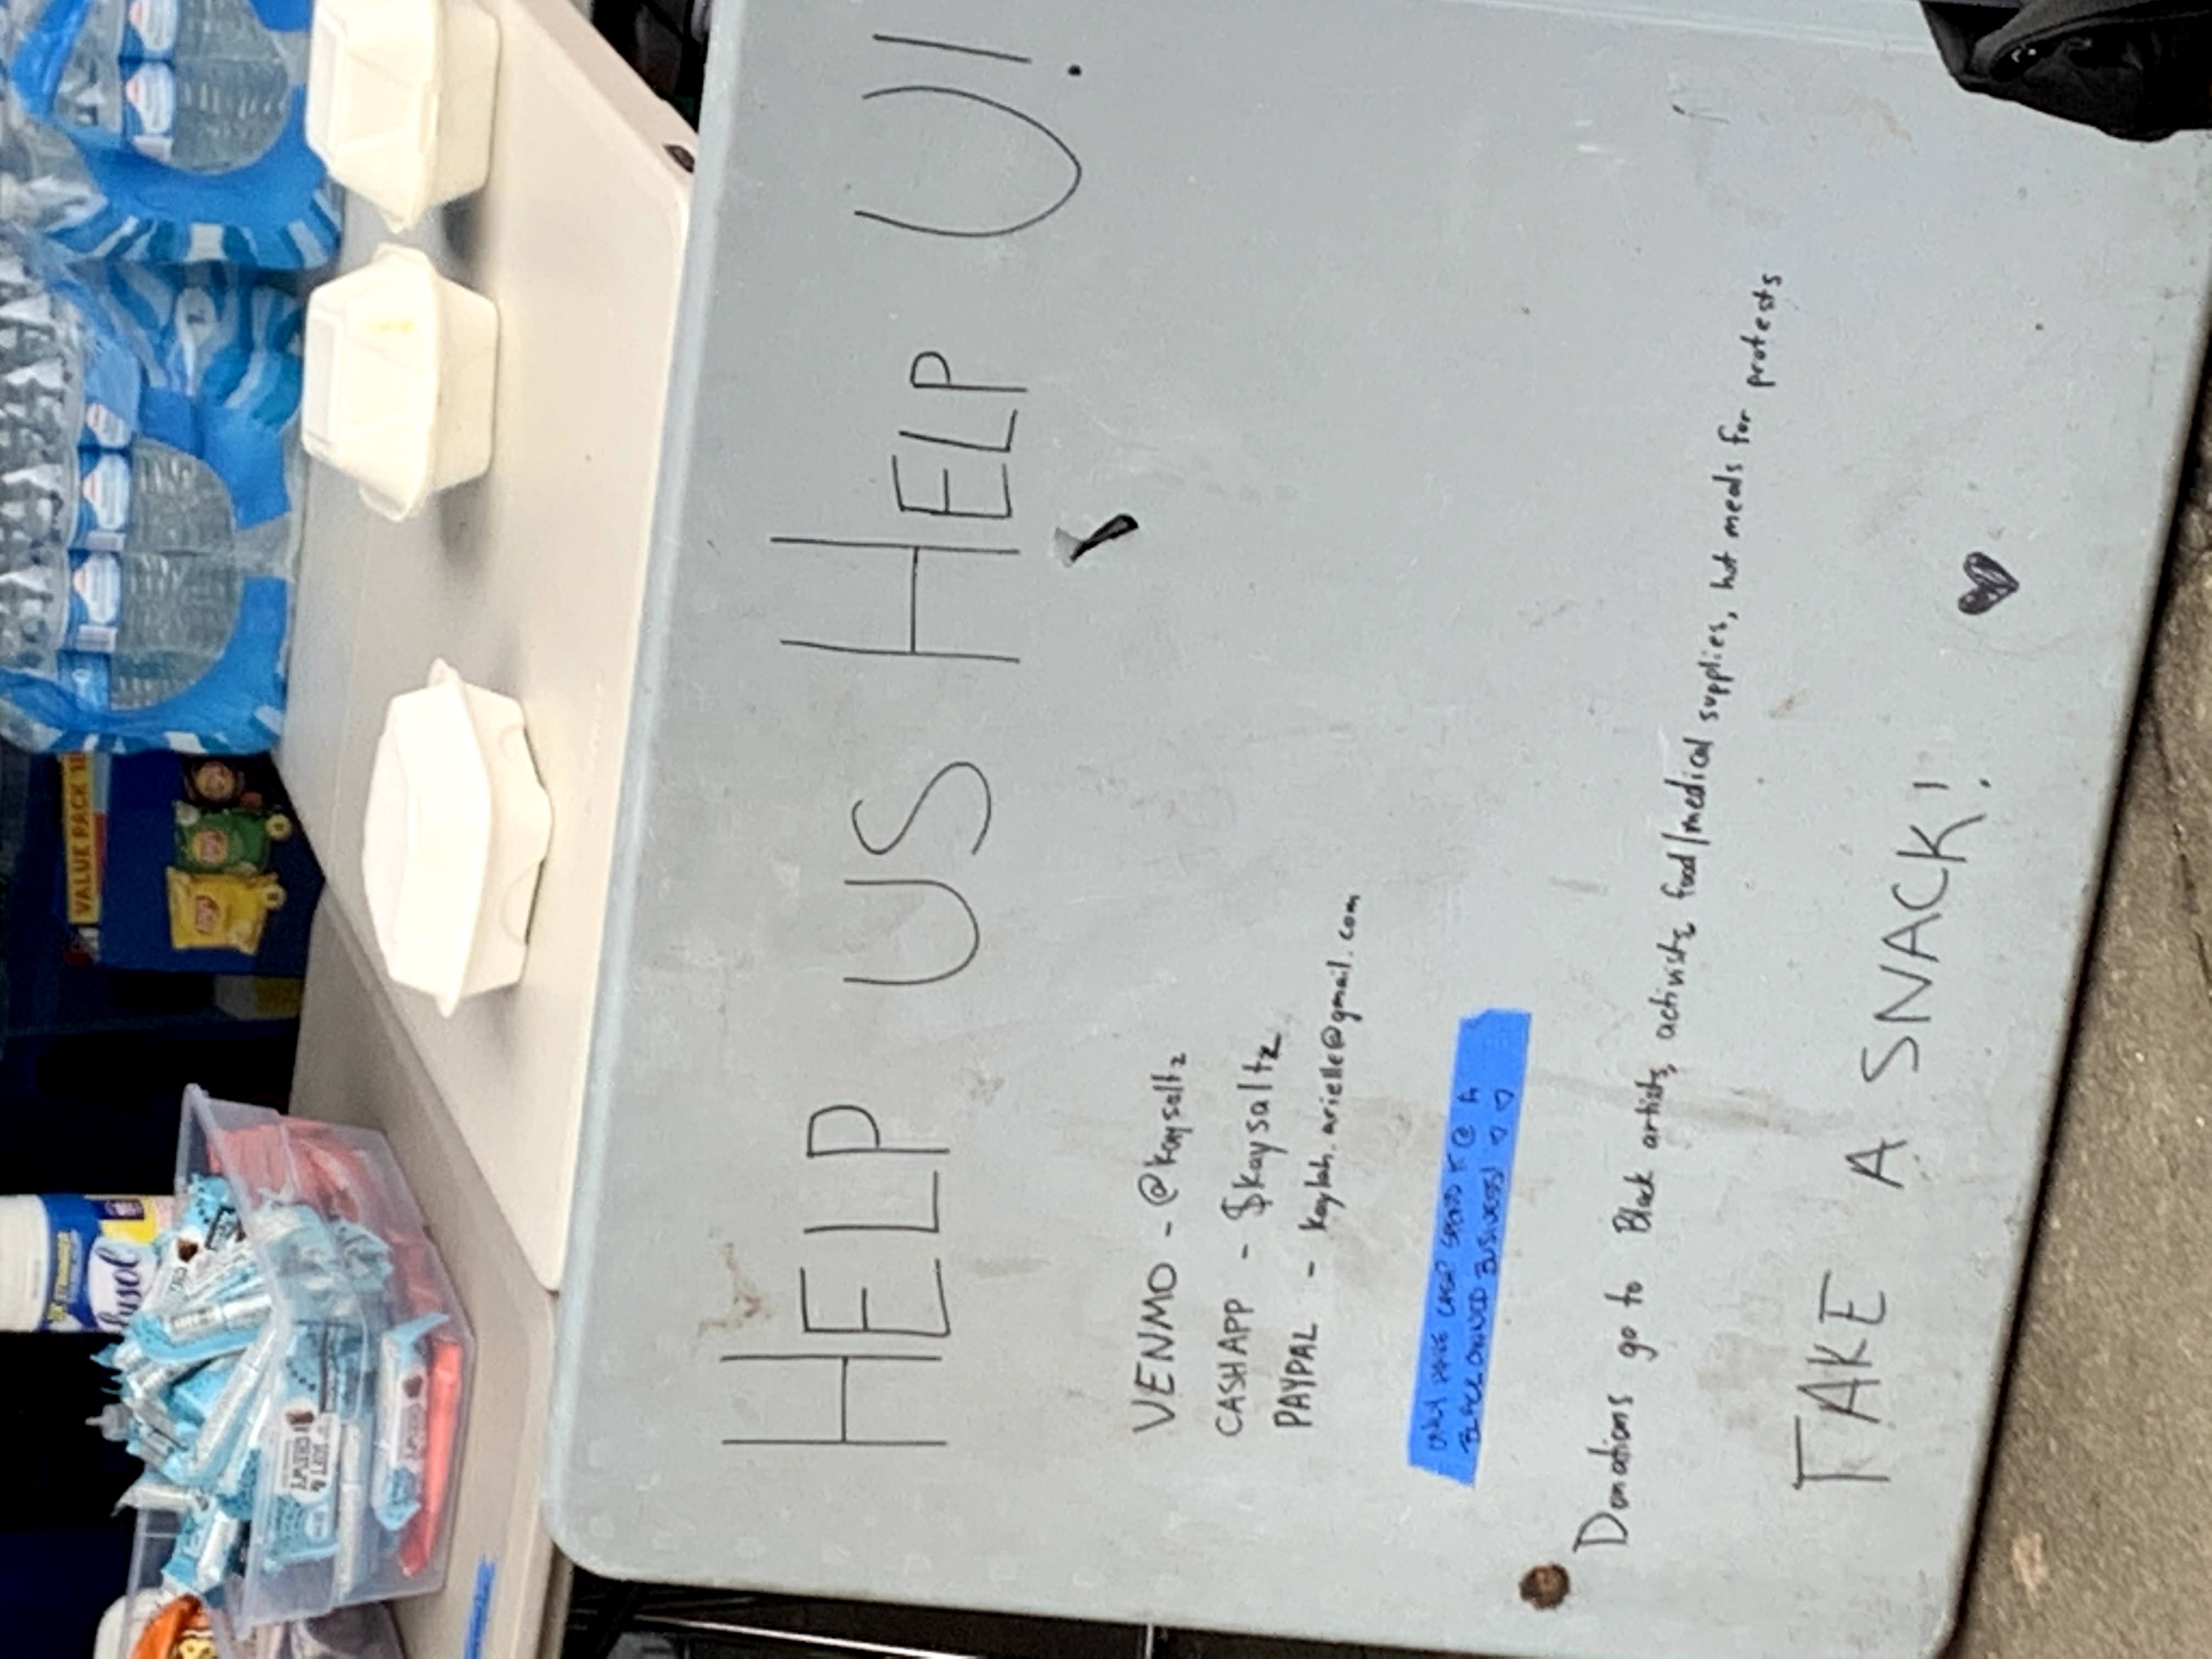 Lysol
VALUE PACK
Lay's
Lay's
HELP US HELP U!
VENMO - @kaysaltz
CASHAPP - $kaysaltz
PAYPAL - kaylah.arielle@gmail.com
ONLY HAVE CASH? SPEND IT @ A
BLACK OWNED BUSINESS! ♡ ♡
Donations go to Black artists, activists, food/medical supplies, hot meals for protests
TAKE A SNACK! ♥